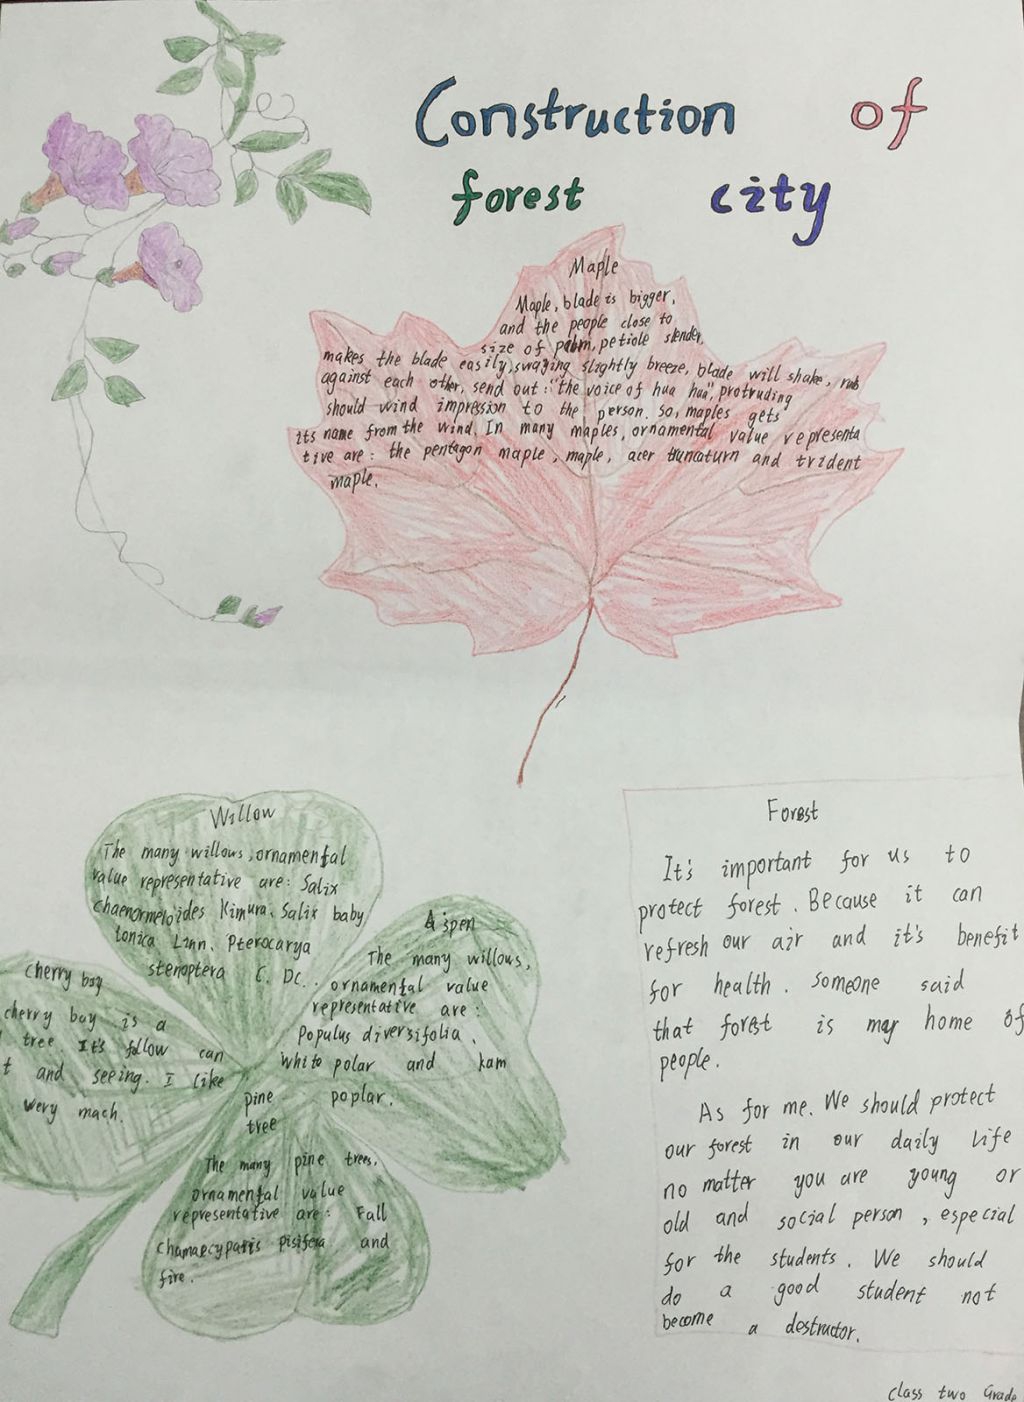 Construction of
forest city
Maple
Maple, blade is bigger,
and the people close to
size of palm, petiole slender,
makes the blade easily, swaging slightly breeze, blade will shake, rub
against each other, send out: "the voice of hua hua", protruding
should wind impression to the person. So, maples gets
its name from the wind. In many maples, ornamental value representa
tive are: the pentagon maple, maple, acer truncaturn and trident
maple.
Willow
The many willows, ornamental
value representative are: Salix
chaenormeloides Kimura. Salix baby
lonica Linn. Pterocarya
stenoptera C. DC.
Aspen
The many willows,
ornamental value
representative are:
Populus diversifolia.
white polar and kam
poplar.
cherry bay
cherry bay is a
tree It's follow can
t and seeing. I like
wery mach.
pine
tree
The many pine trees.
ornamental value
representative are: Fall
chamaecyparis pisifera and
fire.
Forest
It's important for us to
protect forest. Because it can
refresh our air and it's benefit
for health. someone said
that forest is may home of
people.
As for me. We should protect
our forest in our daily life
no matter you are young or
old and social person, especial
for the students. We should
do a good student not
become a destructor.
Class two Grade